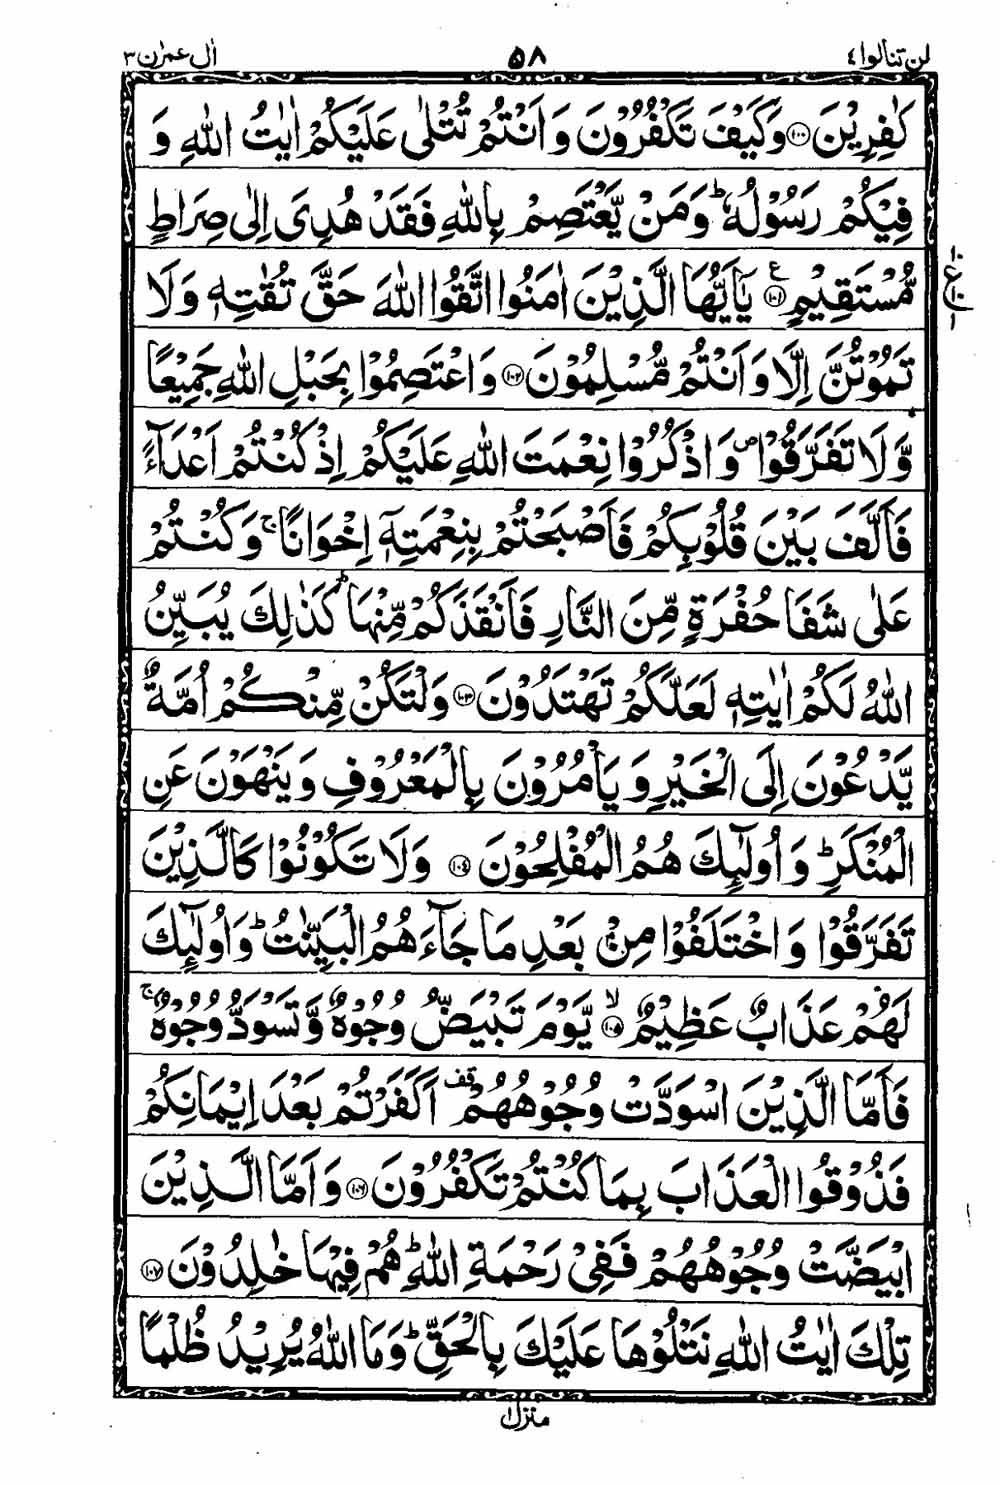 لن تنالوا ٤ ٥٨ اٰل عمرٰن ٣
كٰفِرِيْنَ ﴿١٠٠﴾ وَكَيْفَ تَكْفُرُوْنَ وَاَنْتُمْ تُتْلٰى عَلَيْكُمْ اٰيٰتُ اللّٰهِ وَ
فِيْكُمْ رَسُوْلُهٗ ؕ وَمَنْ يَّعْتَصِمْ بِاللّٰهِ فَقَدْ هُدِىَ اِلٰى صِرَاطٍ
مُّسْتَقِيْمٍ ﴿١٠١﴾ ع يٰۤاَيُّهَا الَّذِيْنَ اٰمَنُوا اتَّقُوا اللّٰهَ حَقَّ تُقٰتِهٖ وَلَا
تَمُوْتُنَّ اِلَّا وَاَنْتُمْ مُّسْلِمُوْنَ ﴿١٠٢﴾ وَاعْتَصِمُوْا بِحَبْلِ اللّٰهِ جَمِيْعًا
وَّلَا تَفَرَّقُوْا ص وَاذْكُرُوْا نِعْمَتَ اللّٰهِ عَلَيْكُمْ اِذْ كُنْتُمْ اَعْدَآءً
فَاَلَّفَ بَيْنَ قُلُوْبِكُمْ فَاَصْبَحْتُمْ بِنِعْمَتِهٖۤ اِخْوَانًا ۚ وَكُنْتُمْ
عَلٰى شَفَا حُفْرَةٍ مِّنَ النَّارِ فَاَنْقَذَكُمْ مِّنْهَا ؕ كَذٰلِكَ يُبَيِّنُ
اللّٰهُ لَكُمْ اٰيٰتِهٖ لَعَلَّكُمْ تَهْتَدُوْنَ ﴿١٠٣﴾ وَلْتَكُنْ مِّنْكُمْ اُمَّةٌ
يَّدْعُوْنَ اِلَى الْخَيْرِ وَيَاْمُرُوْنَ بِالْمَعْرُوْفِ وَيَنْهَوْنَ عَنِ
الْمُنْكَرِ ؕ وَاُولٰٓئِكَ هُمُ الْمُفْلِحُوْنَ ﴿١٠٤﴾ وَلَا تَكُوْنُوْا كَالَّذِيْنَ
تَفَرَّقُوْا وَاخْتَلَفُوْا مِنْۢ بَعْدِ مَا جَآءَهُمُ الْبَيِّنٰتُ ؕ وَاُولٰٓئِكَ
لَهُمْ عَذَابٌ عَظِيْمٌ ﴿١٠٥﴾ ۙ يَّوْمَ تَبْيَضُّ وُجُوْهٌ وَّتَسْوَدُّ وُجُوْهٌ ۚ
فَاَمَّا الَّذِيْنَ اسْوَدَّتْ وُجُوْهُهُمْ قف اَكَفَرْتُمْ بَعْدَ اِيْمَانِكُمْ
فَذُوْقُوا الْعَذَابَ بِمَا كُنْتُمْ تَكْفُرُوْنَ ﴿١٠٦﴾ وَاَمَّا الَّذِيْنَ
ابْيَضَّتْ وُجُوْهُهُمْ فَفِىْ رَحْمَةِ اللّٰهِ ؕ هُمْ فِيْهَا خٰلِدُوْنَ ﴿١٠٧﴾
تِلْكَ اٰيٰتُ اللّٰهِ نَتْلُوْهَا عَلَيْكَ بِالْحَقِّ ؕ وَمَا اللّٰهُ يُرِيْدُ ظُلْمًا
منزل ١